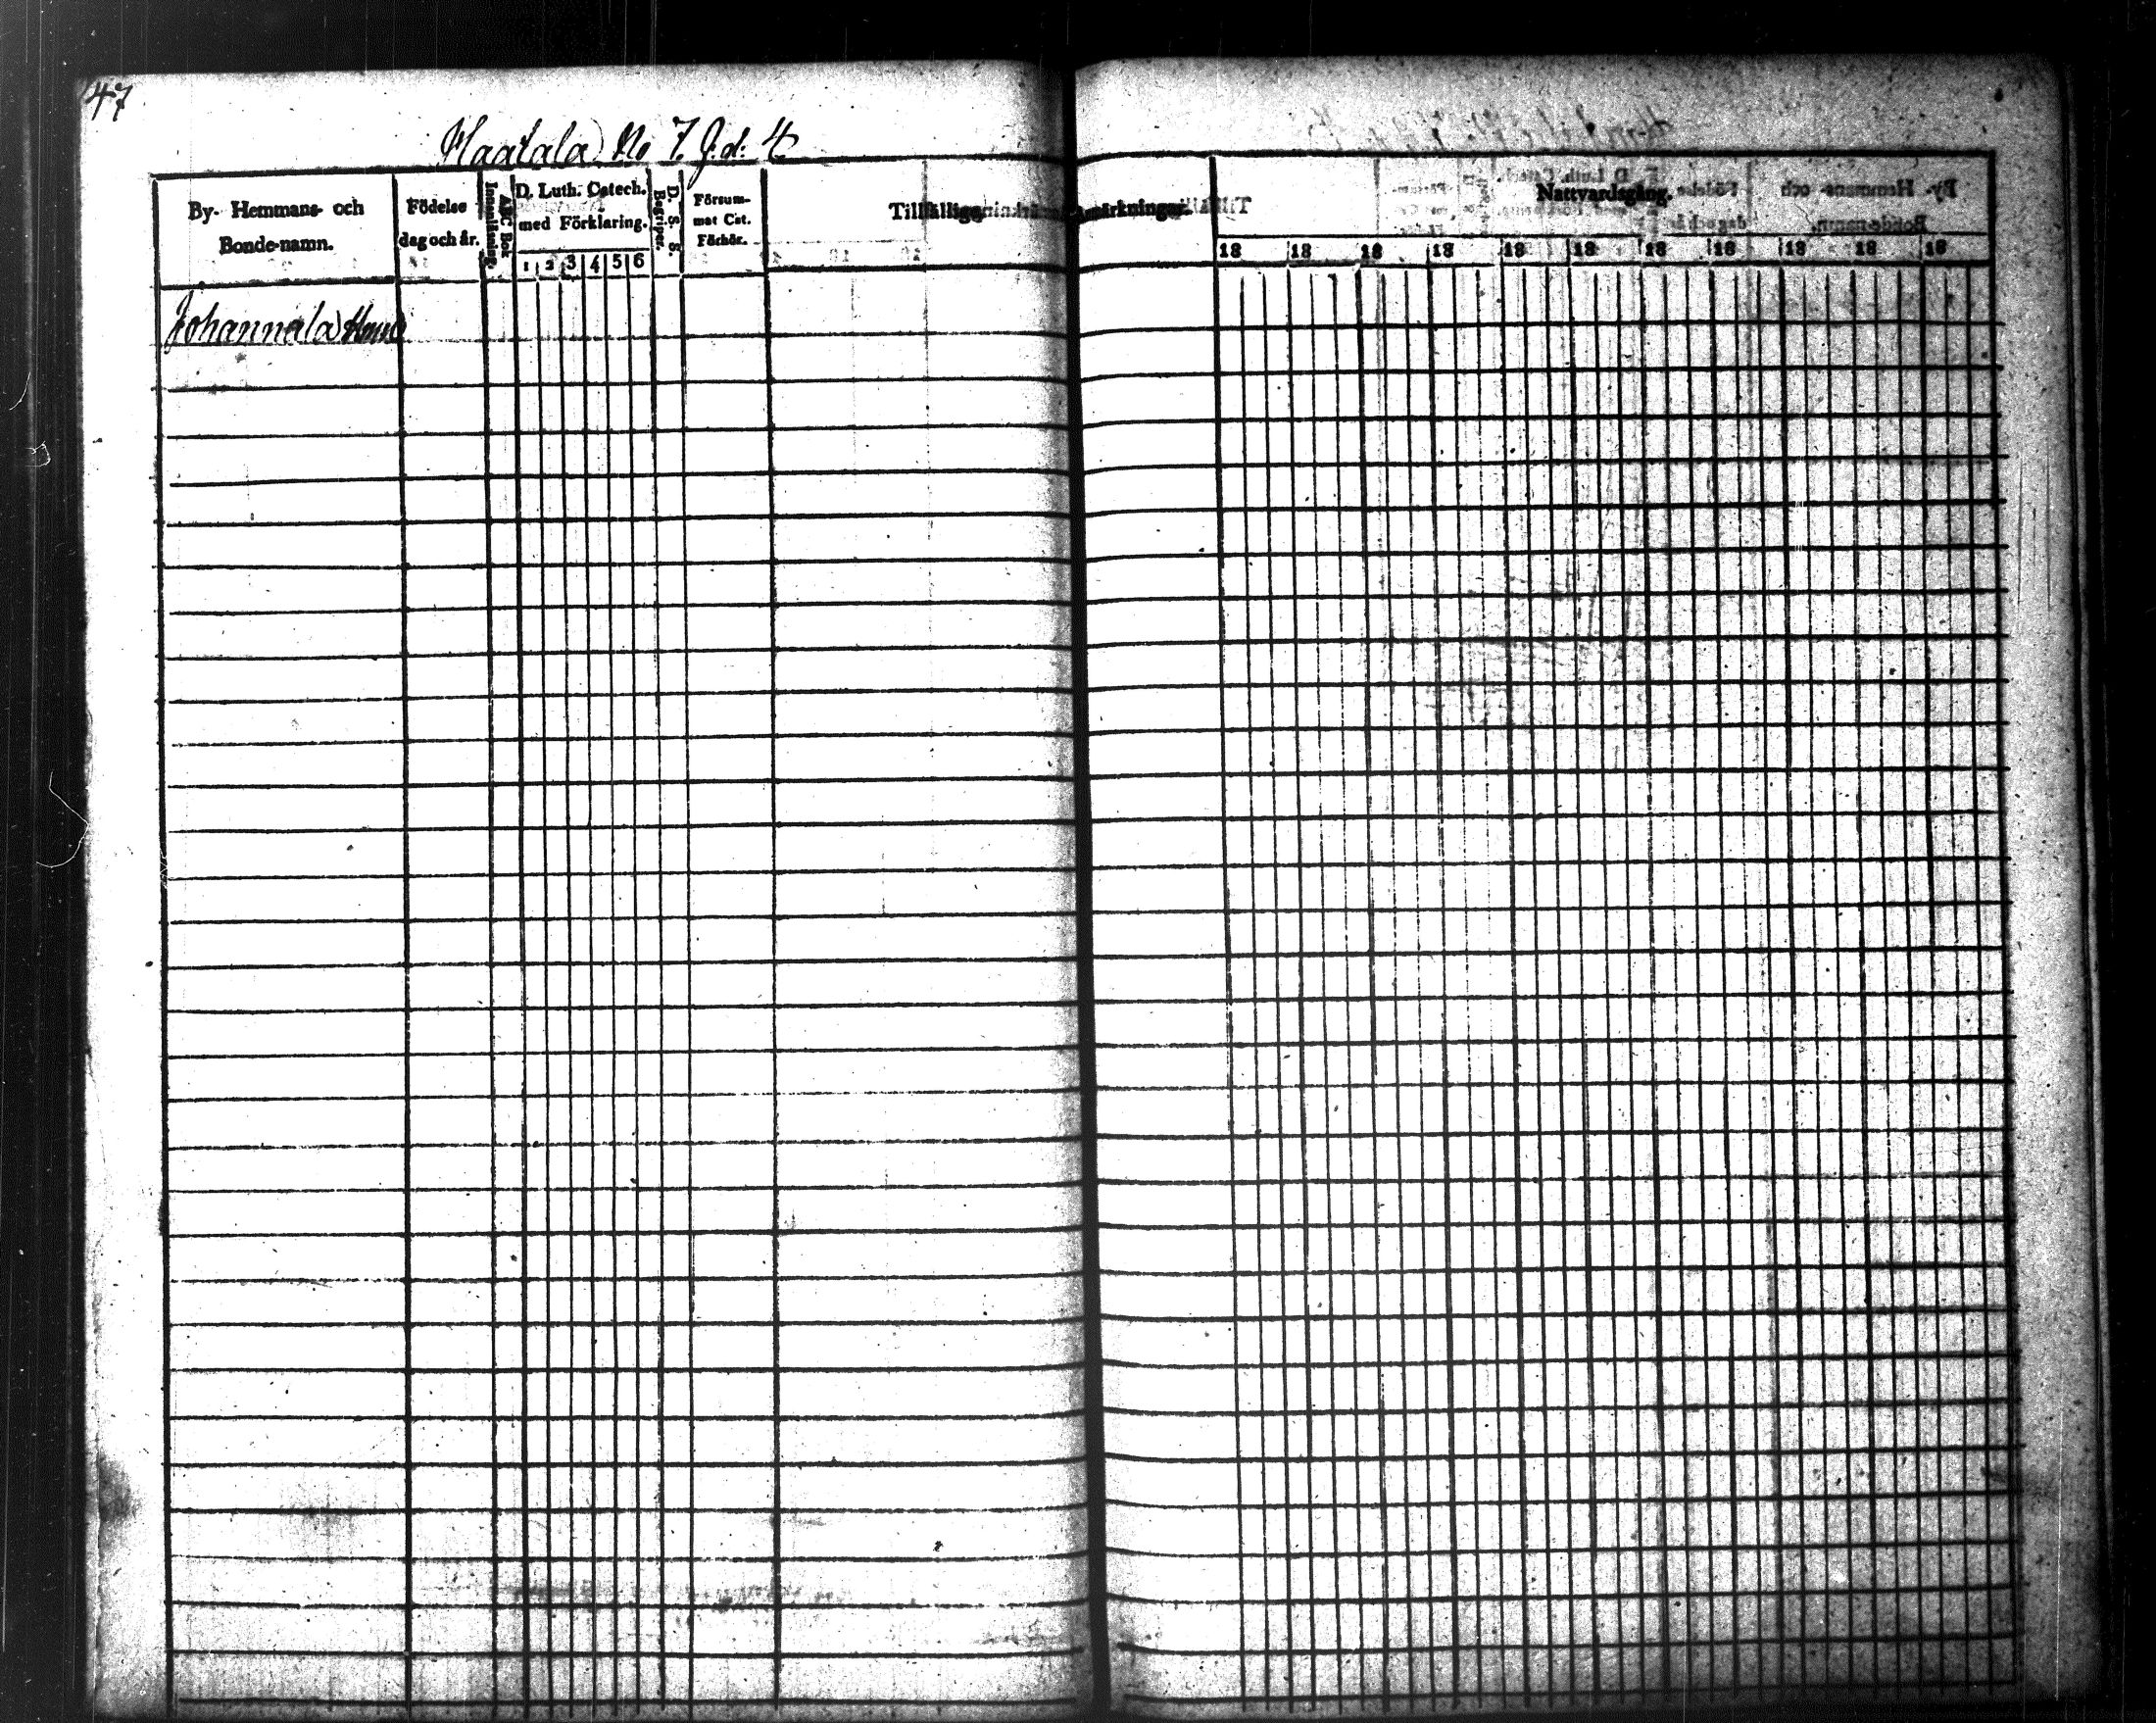 47
Haatala No 7. J.d. 4
By- Hemmans- och
Bonde-namn.
Födelse
dag och år.
Innanläsning.
ABC Bok
D. Luth. Catech.
med Förklaring.
1 2 3 4 5 6
D. S. S.
Begriper.
Försum-
mat Cat.
Förhör.
Tillfälliga Anmärkningar.
Nattvardsgång.
18 18 18 18 18 18 18 18 18 18 18
Johannala